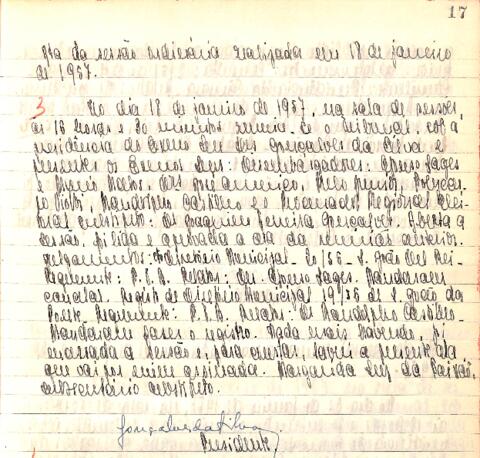 17
Ata da sessão ordinária realizada em 18 de janeiro
de 1957.
3 No dia 18 de janeiro de 1957, na sala de sessões,
às 16 horas e 30 minutos, reuniu-se o Tribunal, sob a
presidência do Exmo Sr. Des. Gonçalves da Silva e
presentes os Exmos Srs: Desembargadores: Afonso Lages
e Mário Matos, drs José Américo, Melo
Viotti, Randolpho Castilho e o Procurador Regional Elei-
toral substituto: dr. Joaquim Ferreira Gonçalves. Aberta a
sessão, foi lida e aprovada a ata da reunião anterior.
Julgamentos: Diretório Municipal - 20/56 - S. João del Rei-
Requerente: P.T.B. Relator: des. Afonso Lages. Mandaram
cancelar. Registro de Diretório Municipal 19/56 de S. João da
Ponte. Requerente: P.T.B. Relator: dr. Randolpho Castilho -
Mandaram fazer o registro. Nada mais havendo, foi
encerrada a sessão e, para constar, lavrei a presente ata
que vai por mim assinada. Margarida Luz da Paixão,
substituto.
Gonçalves da Silva
Presidente